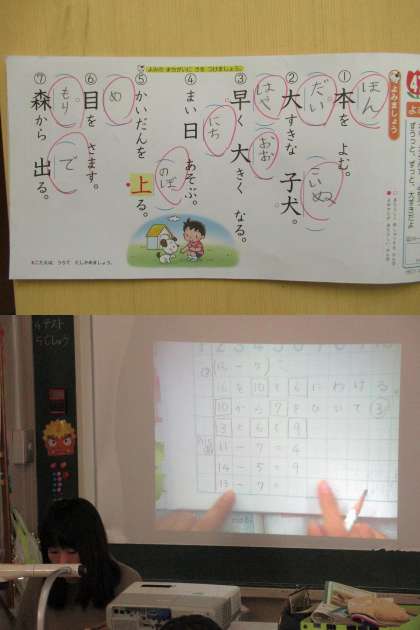 4
よみましょう
ずうっと、ずっと、大すきだよ
よみの まちがいに きを つけましょう。
①本を よむ。
ほん
②大すきな 子犬。
だい
こいぬ
③早く 大きく なる。
はや
おお
④まい日 あそぶ。
にち
⑤かいだんを 上る。
のぼ
⑥目を さます。
め
⑦森から 出る。
もり
で
※こたえは、うらで たしかめましょう。
4テスト
16を10と6にわける
10から7をひいて3
3と6で9
11-7=4
14-5=9
13-7=